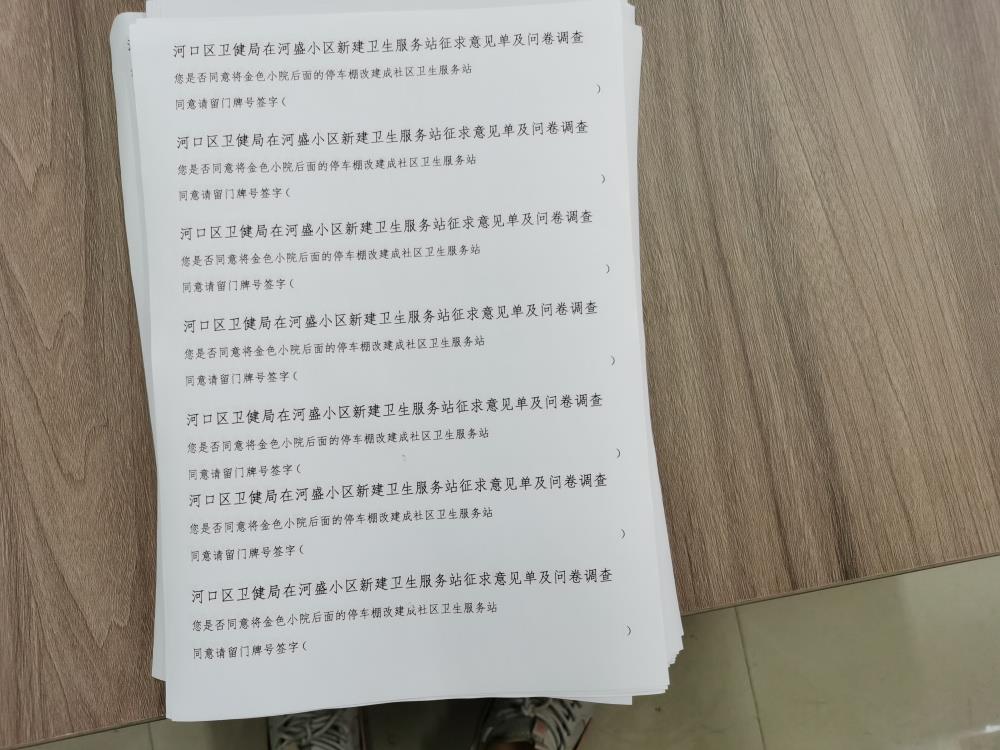 河口区卫健局在河盛小区新建卫生服务站征求意见单及问卷调查
您是否同意将金色小院后面的停车棚改建成社区卫生服务站
同意请留门牌号签字( )
河口区卫健局在河盛小区新建卫生服务站征求意见单及问卷调查
您是否同意将金色小院后面的停车棚改建成社区卫生服务站
同意请留门牌号签字( )
河口区卫健局在河盛小区新建卫生服务站征求意见单及问卷调查
您是否同意将金色小院后面的停车棚改建成社区卫生服务站
同意请留门牌号签字( )
河口区卫健局在河盛小区新建卫生服务站征求意见单及问卷调查
您是否同意将金色小院后面的停车棚改建成社区卫生服务站
同意请留门牌号签字( )
河口区卫健局在河盛小区新建卫生服务站征求意见单及问卷调查
您是否同意将金色小院后面的停车棚改建成社区卫生服务站
同意请留门牌号签字( )
河口区卫健局在河盛小区新建卫生服务站征求意见单及问卷调查
您是否同意将金色小院后面的停车棚改建成社区卫生服务站
同意请留门牌号签字( )
河口区卫健局在河盛小区新建卫生服务站征求意见单及问卷调查
您是否同意将金色小院后面的停车棚改建成社区卫生服务站
同意请留门牌号签字( )